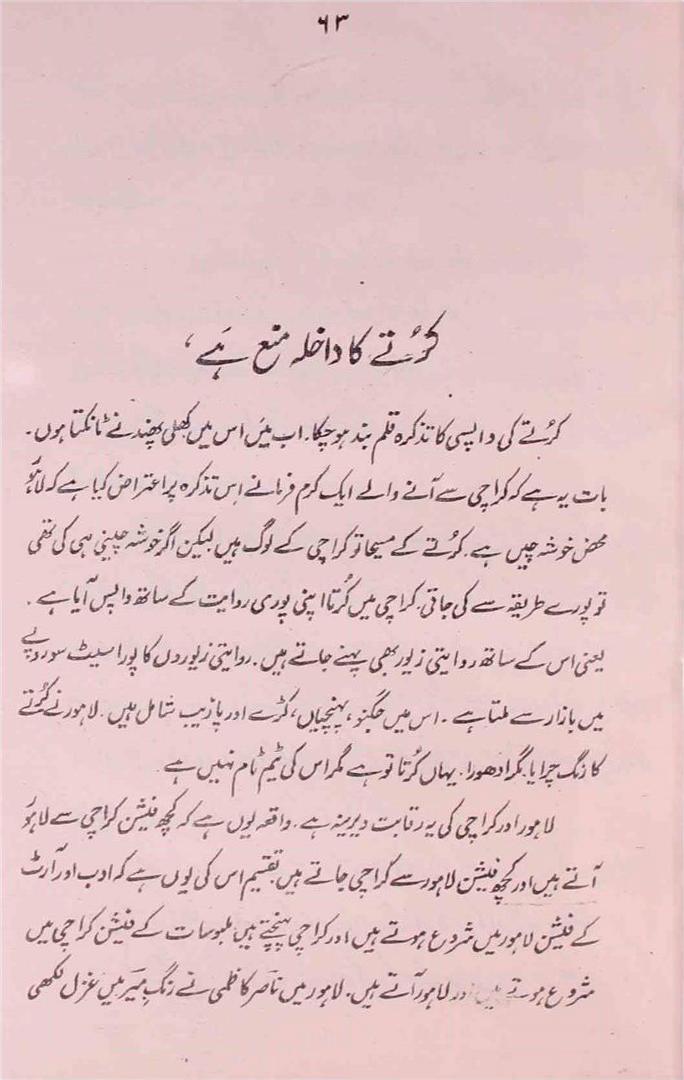 ۶۳
کُرتے کا داخلہ منع ہَے،
کرُتے کی واپسی کا تذکرہ قلم بند ہوچکا۔ اب مَیں اس میں کھلی پھندنے ٹانکتا ہوں۔
بات یہ ہے کہ کراچی سے آنے والے ایک کرم فرمانے اس تذکرہ پر اعتراض کیا ہے کہ لاہور
محض خوشہ چیں ہے۔ کرُتے کے مسیحا تو کراچی کے لوگ ہیں لیکن اگر خوشہ چینی ہی کی تھی
تو پورے طریقہ سے کی جاتی۔ کراچی میں کُرتا اپنی پوری روایت کے ساتھ واپس آیا ہے۔
یعنی اس کے ساتھ روایتی زیور بھی پہنے جاتے ہیں۔ روایتی زیوروں کا پورا سیٹ سو روپے
میں بازار سے ملتا ہے۔ اس میں جگنو، پہنچیاں، کڑے اور پازیب شامل ہیں۔ لاہور نے کُرتے
کا رنگ چرایا۔ مگر ادھورا۔ یہاں کُرتا تو ہے مگر اس کی ٹیم ٹام نہیں ہے
لاہور اور کراچی کی یہ رقابت دیرینہ ہے۔ واقعہ یوں ہے کہ کچھ فیشن کراچی سے لاہور
آتے ہیں اور کچھ فیشن لاہور سے کراچی جاتے ہیں تقسیم اس کی یوں ہے کہ ادب اور آرٹ
کے فیشن لاہور میں شروع ہوتے ہیں اور کراچی پہنچتے ہیں ملبوسات کے فیشن کراچی میں
شروع ہوتے ہیں اور لاہور آتے ہیں۔ لاہور میں ناصر کاظمی نے رنگِ میر میں غزل لکھی